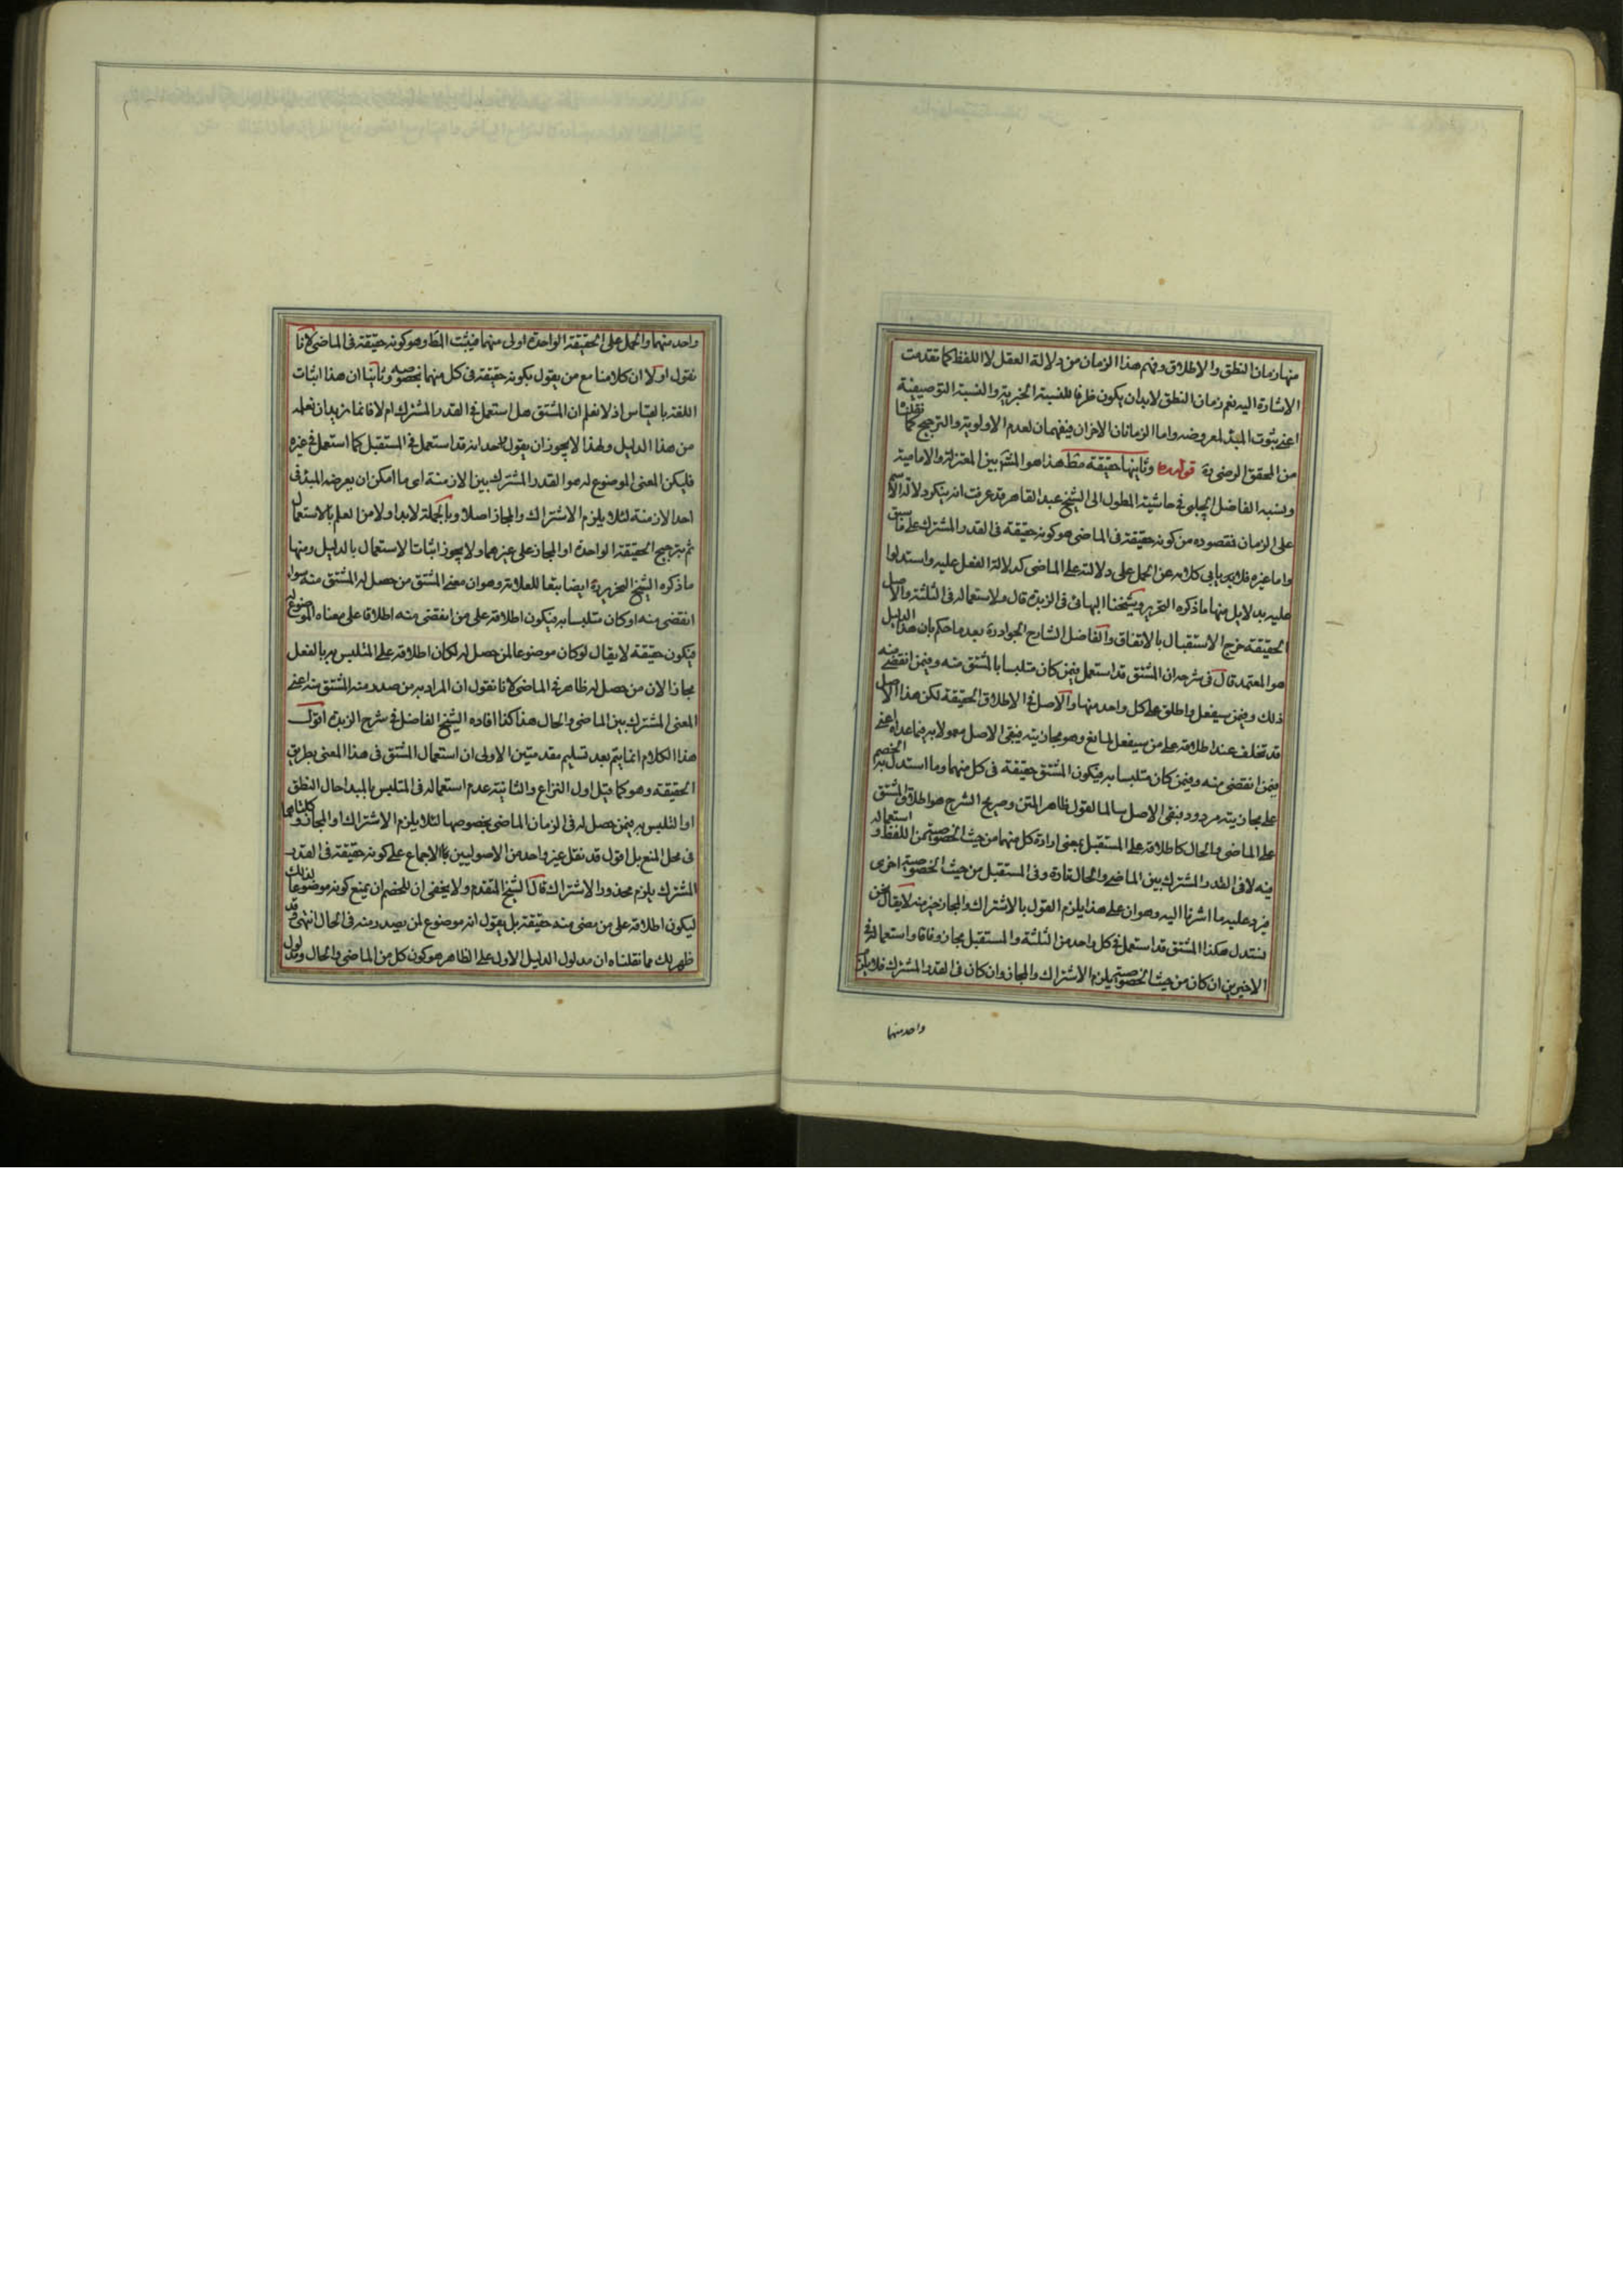 منها زمان النطق والاطلاق وفهم هذا الزمان من دلالة العقل لا اللفظ كما تقدمت
الاشارة اليه نعم زمان النطق لابد ان يكون ظرفا للنسبة الخبرية والنسبة التوصيفية
اعنى ثبوت المبدأ لمعروضه واما الزمانان الاخران فيفهمان لعدم الاولوية والترجيح كما نقلنا
من المحقق الرضى ره قوله ره وثانيها حقيقة مط هذا هو المش بين المعتزلة والامامية
ونسبه الفاضل الچلبى فى حاشية المطول الى الشيخ عبد القاهر وقد عرفت انه ينكر دلالة الاسم
على الزمان فمقصوده من كونه حقيقة فى الماضى هو كونه حقيقة فى القدر المشترك على ما سبق
واما غيره فلا يأبى كلامه عن الحمل على دلالته على الماضى كدلالة الفعل عليه واستدلوا
عليه بدلايل منها ما ذكره النحرير وشيخنا البهائى فى الزبدة قال ولاستعماله فى الثلثة والاصل
الحقيقة خرج الاستقبال بالاتفاق والفاضل الشارح الجواد ره بعد ما حكم بان هذا الدليل
هو المعتمد قال فى شرحه ان المشتق قد استعمل فيمن كان متلبسا بالمشتق منه وفيمن انقضى منه
ذلك وفيمن سيفعل واطلق على كل واحد منها والاصل فى الاطلاق الحقيقة لكن هذا الاصل
قد تخلف عند اطلاقه على من سيفعل لمانع وهو مجازيته فيبقى الاصل معمولا به فيما عداه اعنى
فيمن انقضى منه وفيمن كان متلبسا به فيكون المشتق حقيقة فى كل منهما وما استدل به الخصم
على مجازيته مردود فبقى الاصل سالما اقول ظاهر المتن وصريح الشرح هو اطلاق المشتق
على الماضى والحال كاطلاقه على المستقبل بمعنى ارادة كل منهما من حيث الخصوصية من اللفظ و استعماله
فيه لا فى القدر المشترك بين الماضى والحال تارة وفى المستقبل من حيث الخصوصية اخرى
فيرد عليه ما اشرنا اليه وهو ان على هذا يلزم القول بالاشتراك والمجاز خير منه لا يقال نحن
نستدل هكذا المشتق قد استعمل فى كل واحد من الثلثة والمستقبل مجاز وفاقا واستعماله فى
الاخيرين ان كان من حيث الخصوصية يلزم الاشتراك والمجاز وان كان فى القدر المشترك فلا يلزم
واحد منهما
واحد منهما والحمل على الحقيقة الواحدة اولى منهما فيثبت المط وهو كونه حقيقة فى الماضى لانا
نقول اولا ان كلامنا مع من يقول بكونه حقيقة فى كل منهما بخصوصه وثانيا ان هذا اثبات
اللغة بالقياس اذ لا نعلم ان المشتق هل استعمل فى القدر المشترك ام لا فانما نريد ان نعلمه
من هذا الدليل ولهذا لا يجوز ان يقول احد انه قد استعمل فى المستقبل كما استعمل فى غيره
فليكن المعنى الموضوع له هو القدر المشترك بين الازمنة اى ما امكن ان يعرضه المبدأ فى
احد الازمنة لئلا يلزم الاشتراك والمجاز اصلا وبالجملة لابد اولا من العلم بالاستعمال
ثم بترجيح الحقيقة الواحدة او المجاز على غيرهما ولا يجوز اثبات الاستعمال بالدليل ومنها
ما ذكره الشيخ النحرير ره ايضا تبعا للعلامة وهو ان معنى المشتق من حصل له المشتق منه سواء
انقضى منه او كان متلبسا به فيكون اطلاقه على من انقضى منه اطلاقا على معناه الموضوع له
فيكون حقيقة لا يقال لو كان موضوعا لمن حصل له لكان اطلاقه على المتلبس به بالفعل
مجازا لان من حصل له ظاهر فى الماضى لانا نقول ان المراد به من صدر منه المشتق منه اعنى
المعنى المشترك بين الماضى والحال هذا كذا افاده الشيخ الفاضل فى شرح الزبدة اقول
هذا الكلام انما يتم بعد تسليم مقدمتين الاولى ان استعمال المشتق فى هذا المعنى بطريق
الحقيقة وهو كما قيل اول النزاع والثانية عدم استعماله فى المتلبس بالمبدا حال النطق
او التلبس به فيمن حصل له فى الزمان الماضى بخصوصها لئلا يلزم الاشتراك او المجاز و كلتاهما
فى محل المنع بل اقول قد نقل غير واحد من الاصوليين الاجماع على كونه حقيقة فى القدر
المشترك يلزم محذور الاشتراك قال الشيخ المتقدم ولا يخفى ان للخصم ان يمنع كونه موضوعا لذلك
ليكون اطلاقه على من مضى منه حقيقة بل يقول انه موضوع لمن يصدر منه فى الحال انتهى وقد
ظهر لك مما نقلناه ان مدلول الدليل الاول على الظاهر هو كون كل من الماضى والحال مدلول